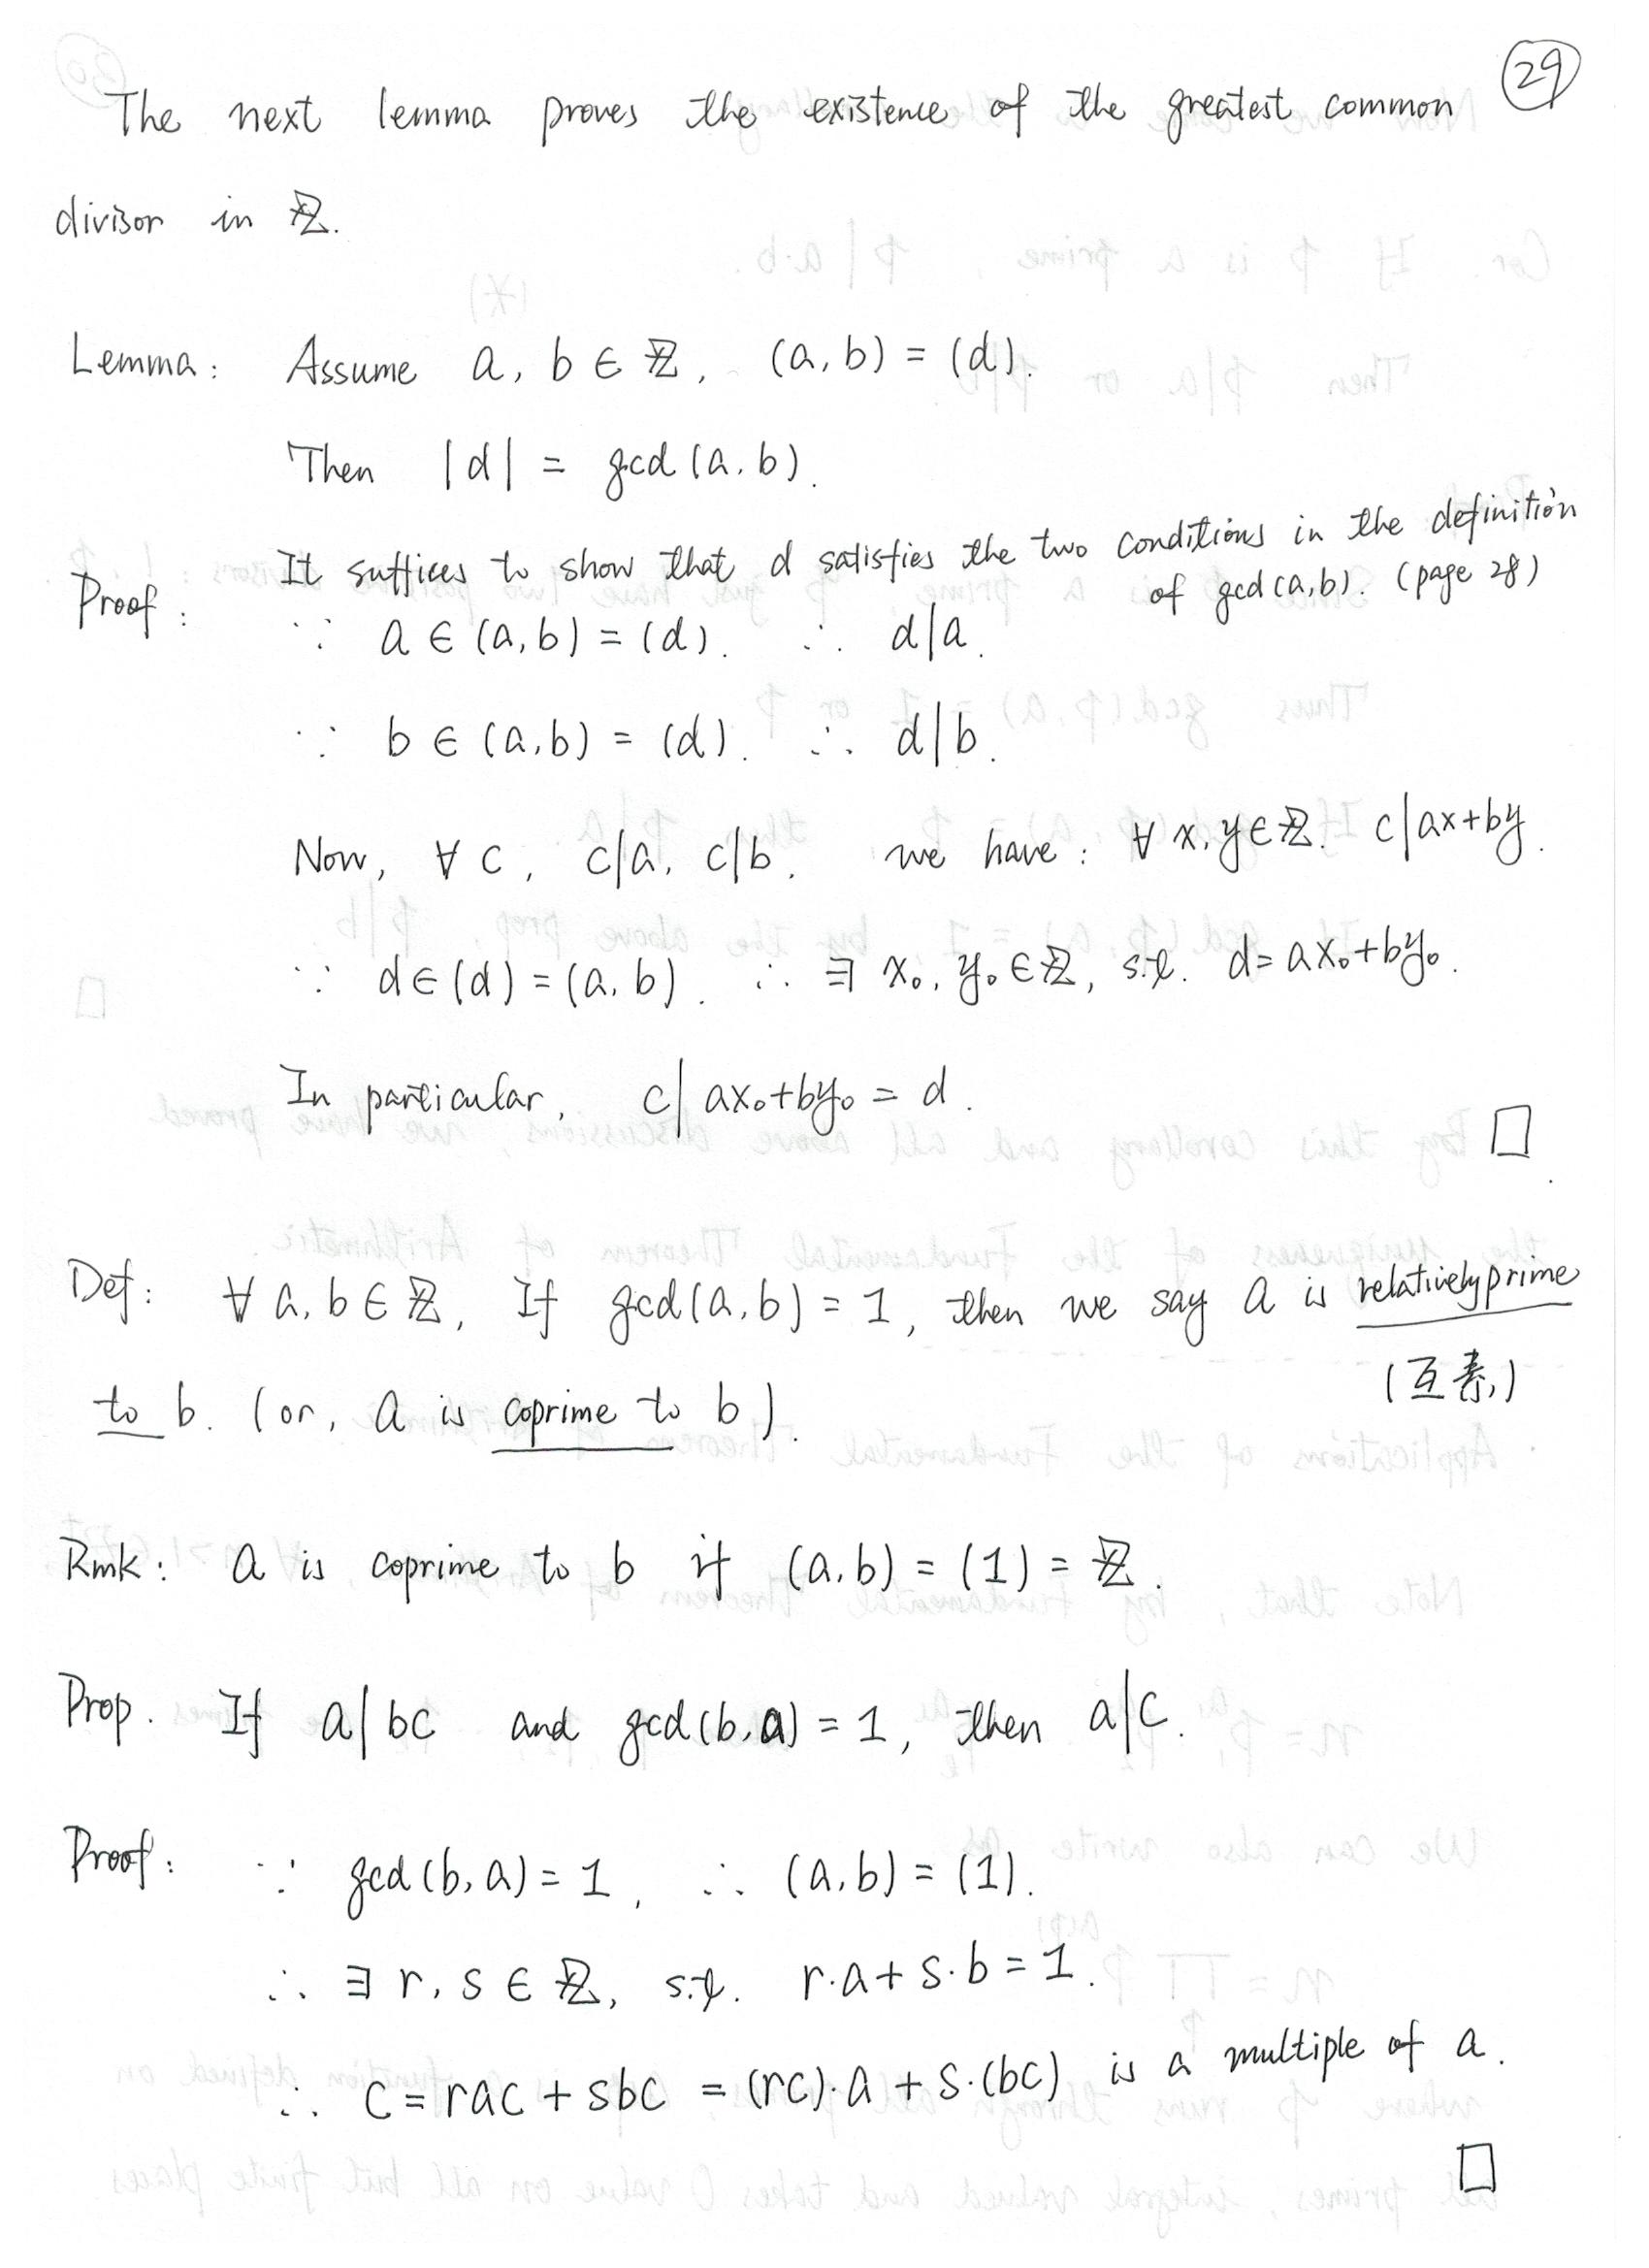 29
The next lemma proves the existence of the greatest common
divisor in ℤ.
Lemma: Assume a, b ∈ ℤ, (a, b) = (d).
Then |d| = gcd(a, b).
Proof: It suffices to show that d satisfies the two conditions in the definition
of gcd(a,b). (page 28)
∵ a ∈ (a, b) = (d). ∴ d|a.
∵ b ∈ (a, b) = (d). ∴ d|b.
Now, ∀ c, c|a, c|b, we have: ∀ x, y ∈ ℤ. c|ax+by.
∵ d ∈ (d) = (a, b). ∴ ∃ x₀, y₀ ∈ ℤ, s.t. d = ax₀+by₀.
In particular, c| ax₀+by₀ = d.
□
Def: ∀ a, b ∈ ℤ, If gcd(a, b) = 1, then we say a is relatively prime
(互素)
to b. (or, a is coprime to b).
Rmk: a is coprime to b if (a, b) = (1) = ℤ.
Prop. If a|bc and gcd(b, a) = 1, then a|c.
Proof: ∵ gcd(b, a) = 1, ∴ (a, b) = (1).
∴ ∃ r, s ∈ ℤ, s.t. r·a + s·b = 1.
∴ c = rac + sbc = (rc)·a + s·(bc) is a multiple of a.
□